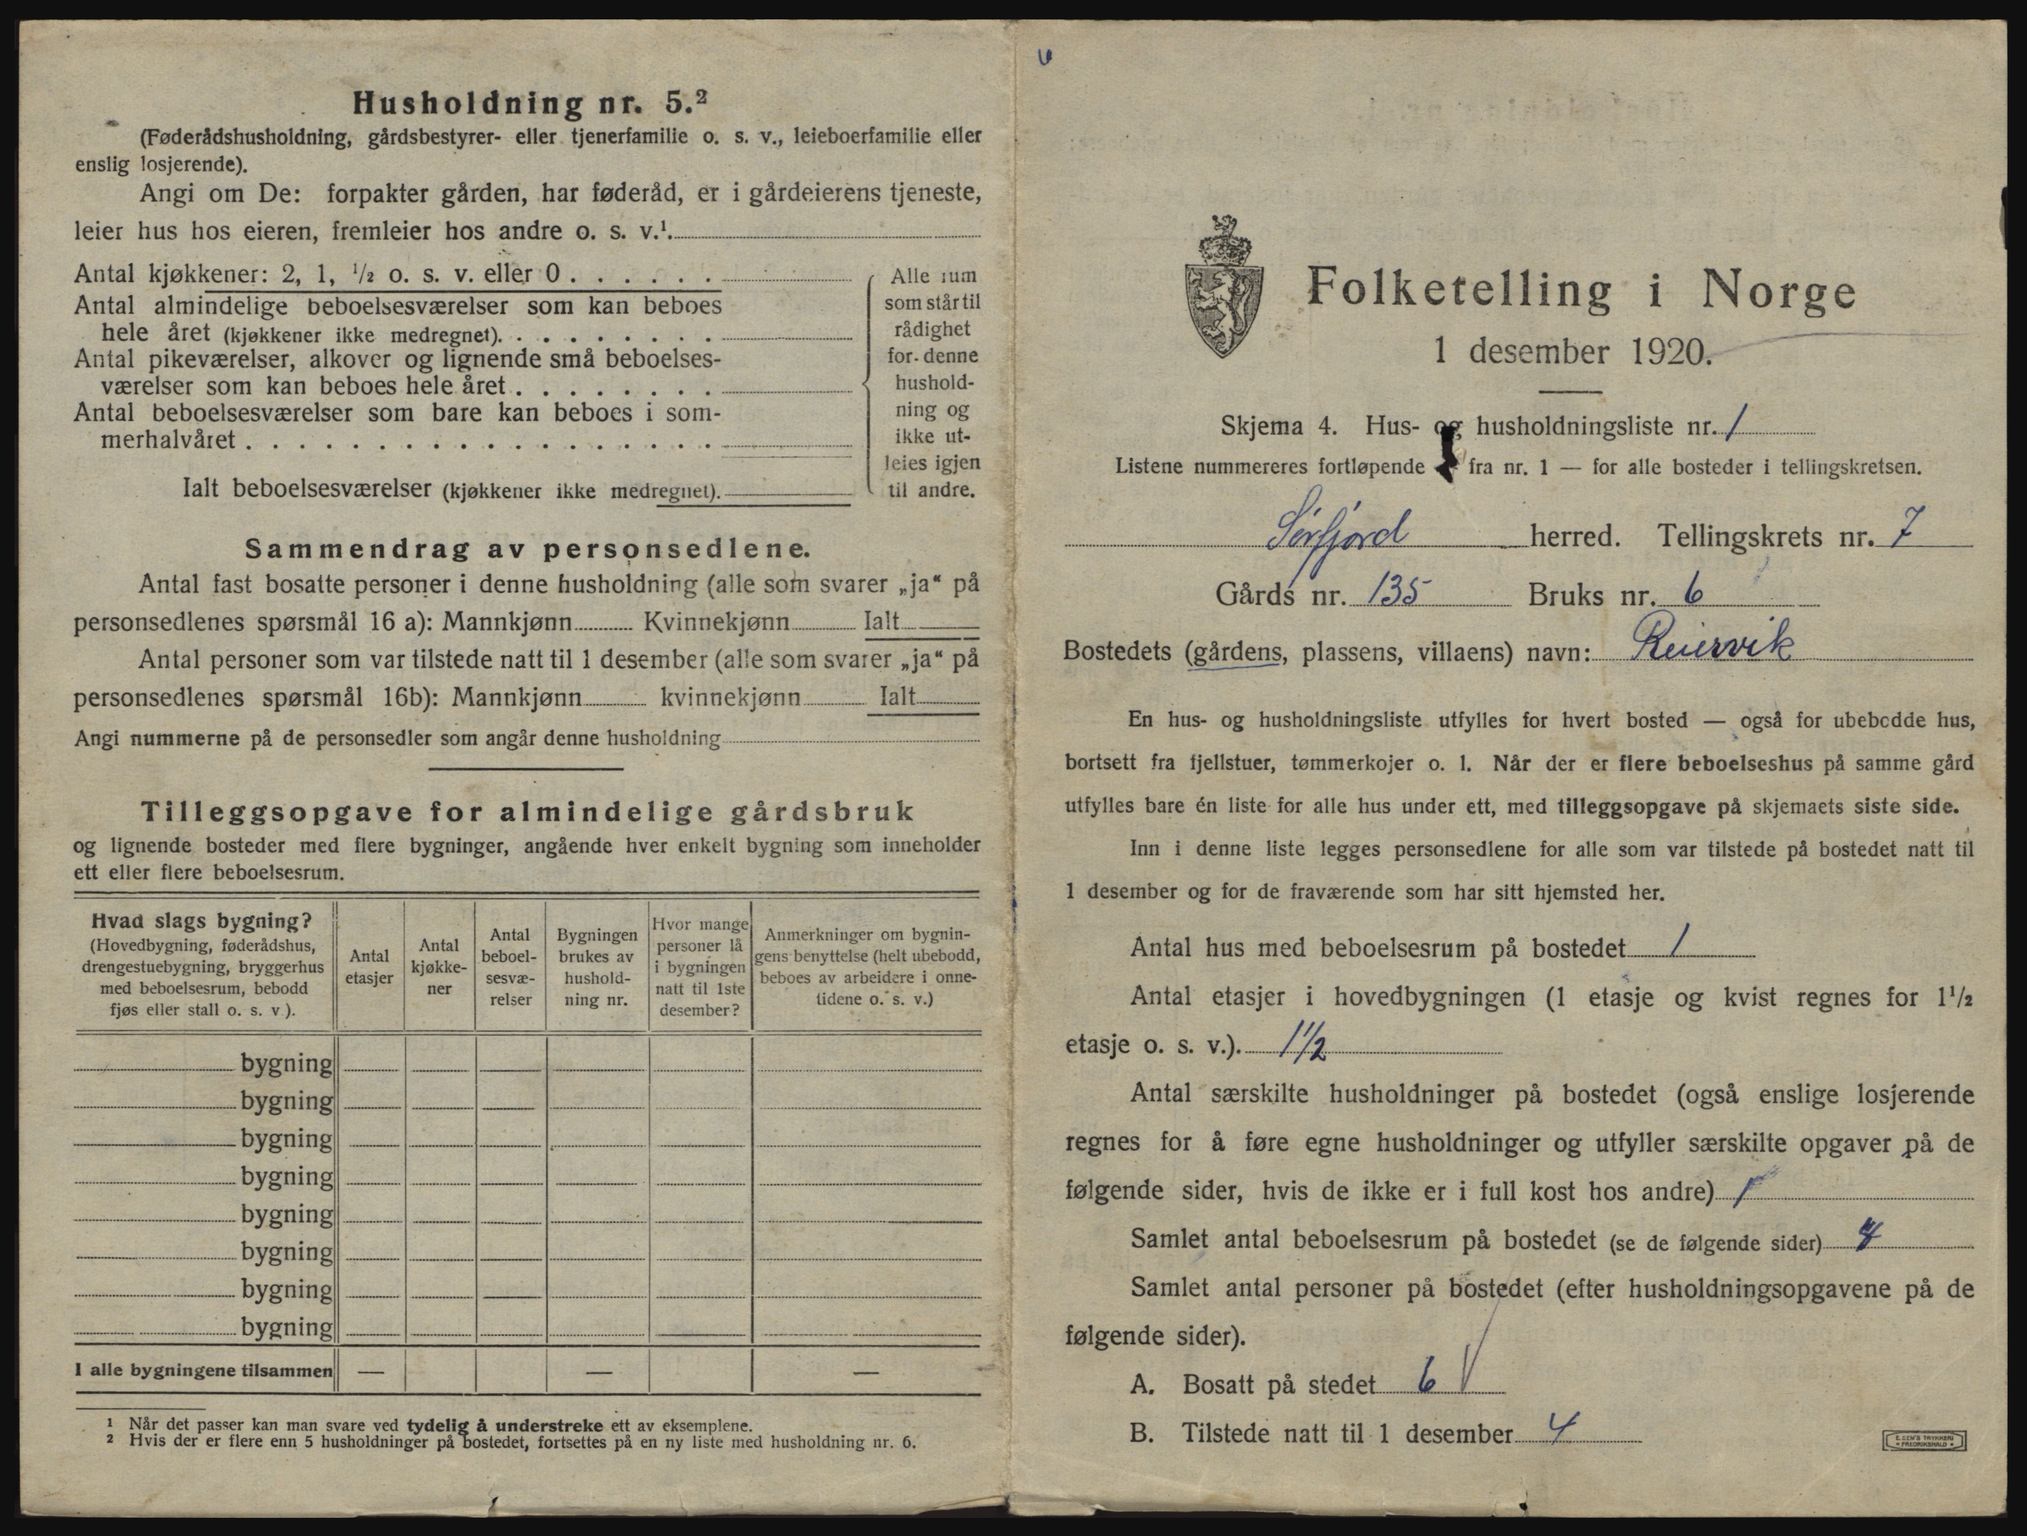 Husholdning nr. 5.²
(Føderådshusholdning, gårdsbestyrer- eller tjenerfamilie o. s. v., leieboerfamilie eller
enslig losjerende).
Angi om De: forpakter gården, har føderåd, er i gårdeierens tjeneste,
leier hus hos eieren, fremleier hos andre o. s. v.¹.
Antal kjøkkener: 2, 1, ½ o. s. v. eller 0 . . . . . .
Antal almindelige beboelsesværelser som kan beboes
hele året (kjøkkener ikke medregnet). . . . . . . . .
Antal pikeværelser, alkover og lignende små beboelses-
værelser som kan beboes hele året . . . . . . . .
Antal beboelsesværelser som bare kan beboes i som-
merhalvåret . . . . . . . . . . . . . . . . . .
Ialt beboelsesværelser (kjøkkener ikke medregnet).
Alle rum
som står til
rådighet
for denne
hushold-
ning og
ikke ut-
leies igjen
til andre.
Sammendrag av personsedlene.
Antal fast bosatte personer i denne husholdning (alle som svarer „ja“ på
personsedlenes spørsmål 16 a): Mannkjønn Kvinnekjønn Ialt
Antal personer som var tilstede natt til 1 desember (alle som svarer „ja“ på
personsedlenes spørsmål 16b): Mannkjønn kvinnekjønn Ialt
Angi nummerne på de personsedler som angår denne husholdning
Tilleggsopgave for almindelige gårdsbruk
og lignende bosteder med flere bygninger, angående hver enkelt bygning som inneholder
ett eller flere beboelsesrum.
Hvad slags bygning?
(Hovedbygning, føderådshus,
drengestuebygning, bryggerhus
med beboelsesrum, bebodd
fjøs eller stall o. s. v ).
Antal
etasjer
Antal
kjøkke-
ner
Antal
beboel-
sesvæ-
relser
Bygningen
brukes av
hushold-
ning nr.
Hvor mange
personer lå
i bygningen
natt til 1ste
desember?
Anmerkninger om bygnin-
gens benyttelse (helt ubebodd,
beboes av arbeidere i onne-
tidene o. s. v.)
bygning
bygning
bygning
bygning
bygning
bygning
bygning
bygning
I alle bygningene tilsammen — — —
¹ Når det passer kan man svare ved tydelig å understreke ett av eksemplene.
² Hvis der er flere enn 5 husholdninger på bostedet, fortsettes på en ny liste med husholdning nr. 6.
Folketelling i Norge
1 desember 1920.
Skjema 4. Hus- og husholdningsliste nr. 1
Listene nummereres fortløpende — fra nr. 1 — for alle bosteder i tellingskretsen.
Sørfjord herred. Tellingskrets nr. 7
Gårds nr. 135 Bruks nr. 6
Bostedets (gårdens, plassens, villaens) navn: Reiervik
En hus- og husholdningsliste utfylles for hvert bosted — også for ubebodde hus,
bortsett fra fjellstuer, tømmerkojer o. l. Når der er flere beboelseshus på samme gård
utfylles bare én liste for alle hus under ett, med tilleggsopgave på skjemaets siste side.
Inn i denne liste legges personsedlene for alle som var tilstede på bostedet natt til
1 desember og for de fraværende som har sitt hjemsted her.
Antal hus med beboelsesrum på bostedet 1
Antal etasjer i hovedbygningen (1 etasje og kvist regnes for 1½
etasje o. s. v.). 1½
Antal særskilte husholdninger på bostedet (også enslige losjerende
regnes for å føre egne husholdninger og utfyller særskilte opgaver på de
følgende sider, hvis de ikke er i full kost hos andre) 1
Samlet antal beboelsesrum på bostedet (se de følgende sider) 4
Samlet antal personer på bostedet (efter husholdningsopgavene på de
følgende sider).
A. Bosatt på stedet 6
B. Tilstede natt til 1 desember 4
E. SEM'S TRYKKERI
FREDRIKSHALD